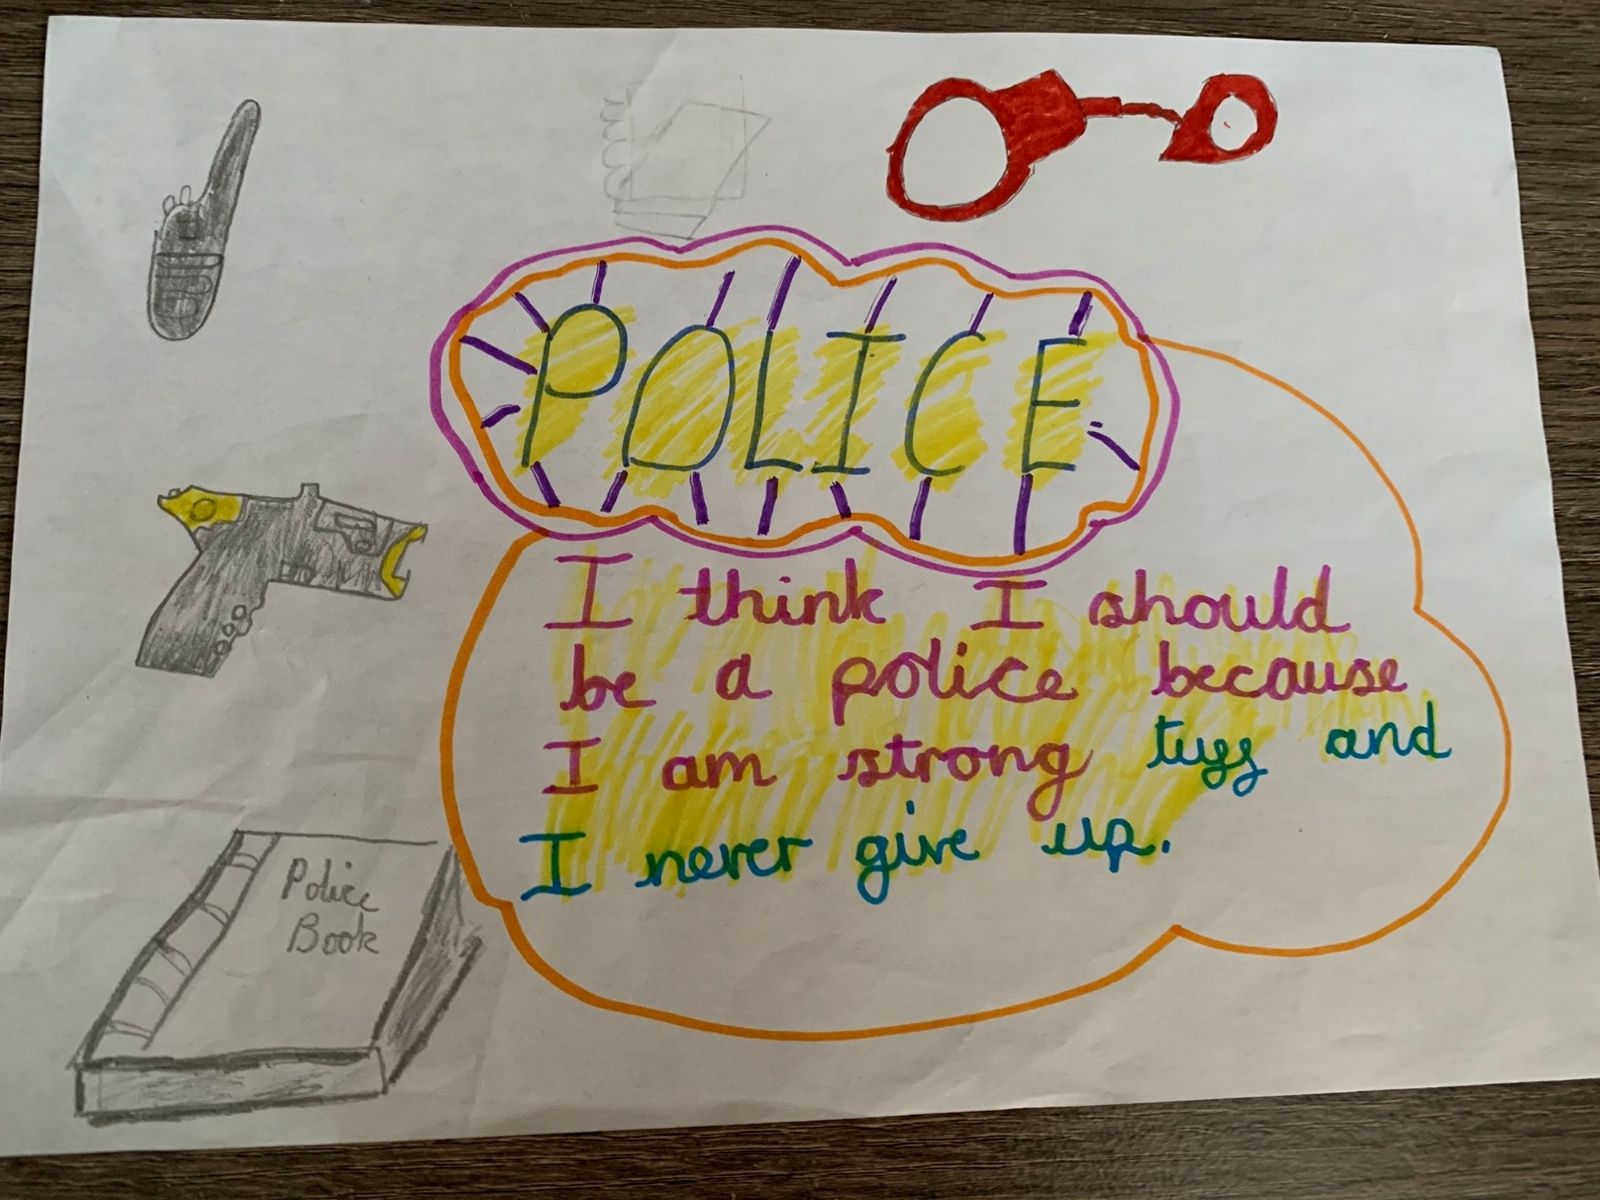 POLICE
I think I should
be a police because
I am strong tuff and
I never give up.
Police
Book